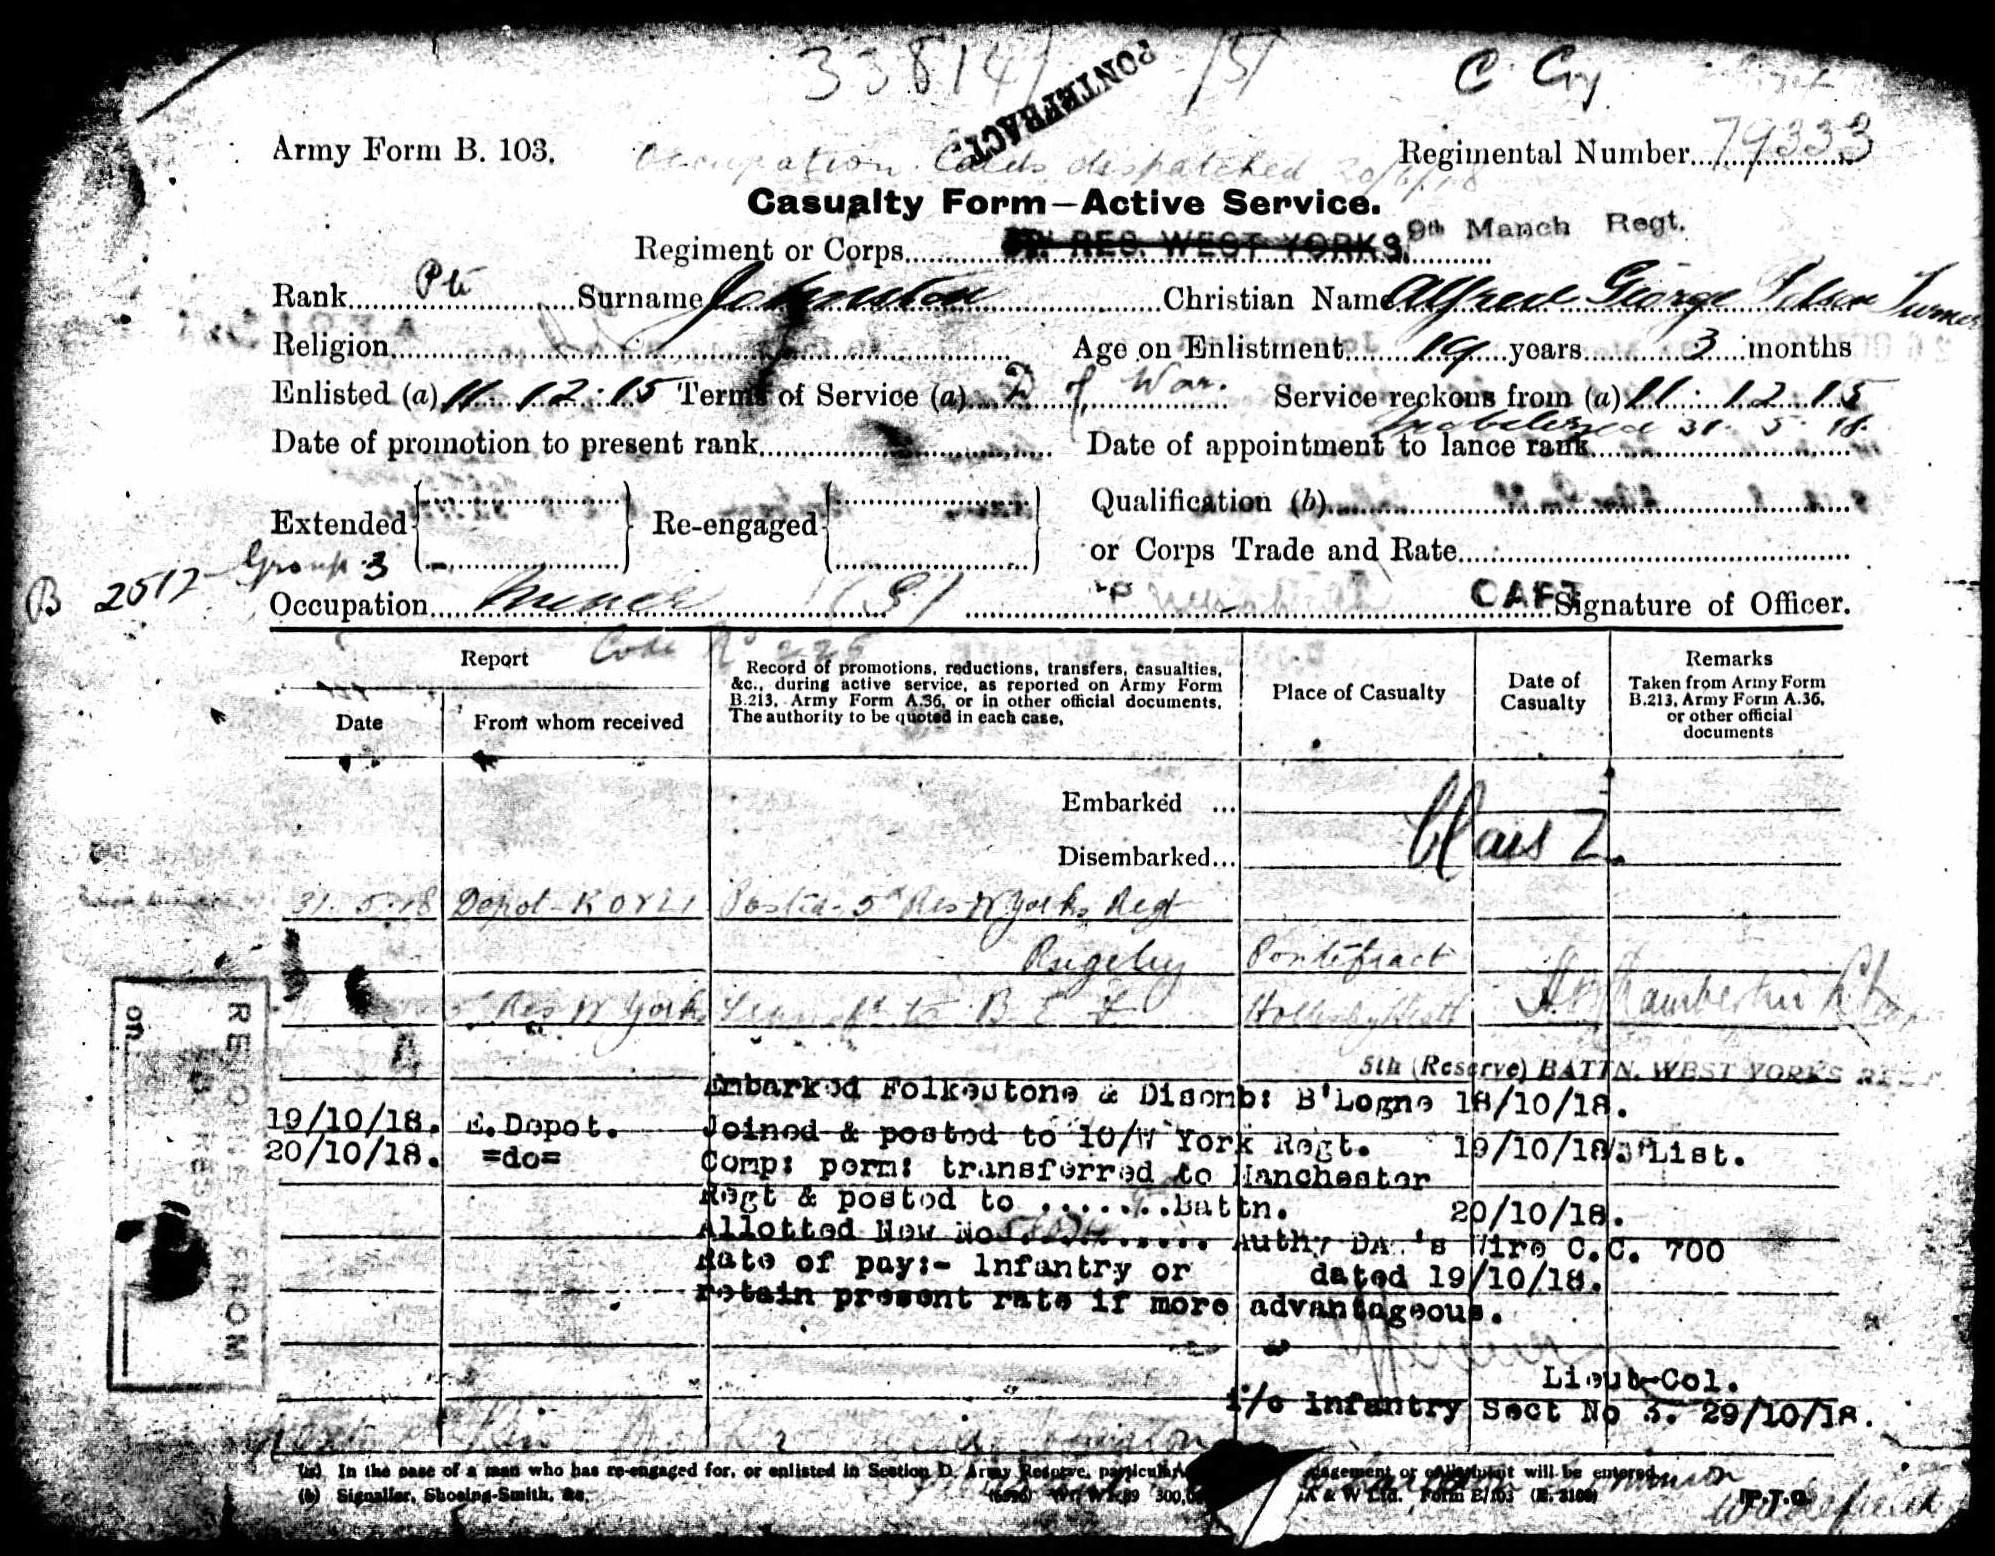 33814/ /5/ C Coy
PONTEFRACT
Army Form B. 103. Regimental Number 79333
Occupation Cards despatched 20/6/18
Casualty Form—Active Service.
Regiment or Corps RES. WEST YORKS. 9th Manch Regt.
Rank Pte Surname Johnston Christian Name Alfred George Turner
Religion Age on Enlistment 19 years 3 months
Enlisted (a) 11.12.15 Terms of Service (a) D of War. Service reckons from (a) 11.12.15
Mobilized 31.5.18.
Date of promotion to present rank Date of appointment to lance rank
Extended Re-engaged Qualification (b)
or Corps Trade and Rate
B 2512 Group 3
Occupation Miner CAPT Signature of Officer.
Code No 225
Report Record of promotions, reductions, transfers, casualties, &c., during active service, as reported on Army Form B.213, Army Form A.36, or in other official documents. The authority to be quoted in each case. Place of Casualty Date of Casualty Remarks Taken from Army Form B.213, Army Form A.36, or other official documents
Date From whom received
Embarked ...
Class Z.
Disembarked...
31.5.18 Depot KOYLI Posted 5th Res W Yorks Regt
Rugeley Pontefract
Res W Yorks to B.E.F.
5th (Reserve) BATTN. WEST YORKS
REJOINED FROM
on
Embarked Folkestone & Disemb: B'Logne 18/10/18.
19/10/18. E.Depot. Joined & posted to 10/W York Regt. 19/10/18 List.
20/10/18. =do= Comp: perm: transferred to Manchester
Regt & posted to .......Battn. 20/10/18.
Allotted New No. Authy DA 's Wire C.C. 700
Rate of pay:- Infantry or dated 19/10/18.
retain present rate if more advantageous.
Lieut-Col.
i/c Infantry Sect No 3. 29/10/18.
(a) In the case of a man who has re-engaged for, or enlisted in Section D. Army Reserve, particulars will be entered
(b) Signaller, Shoeing-Smith, &c. [P.T.O.